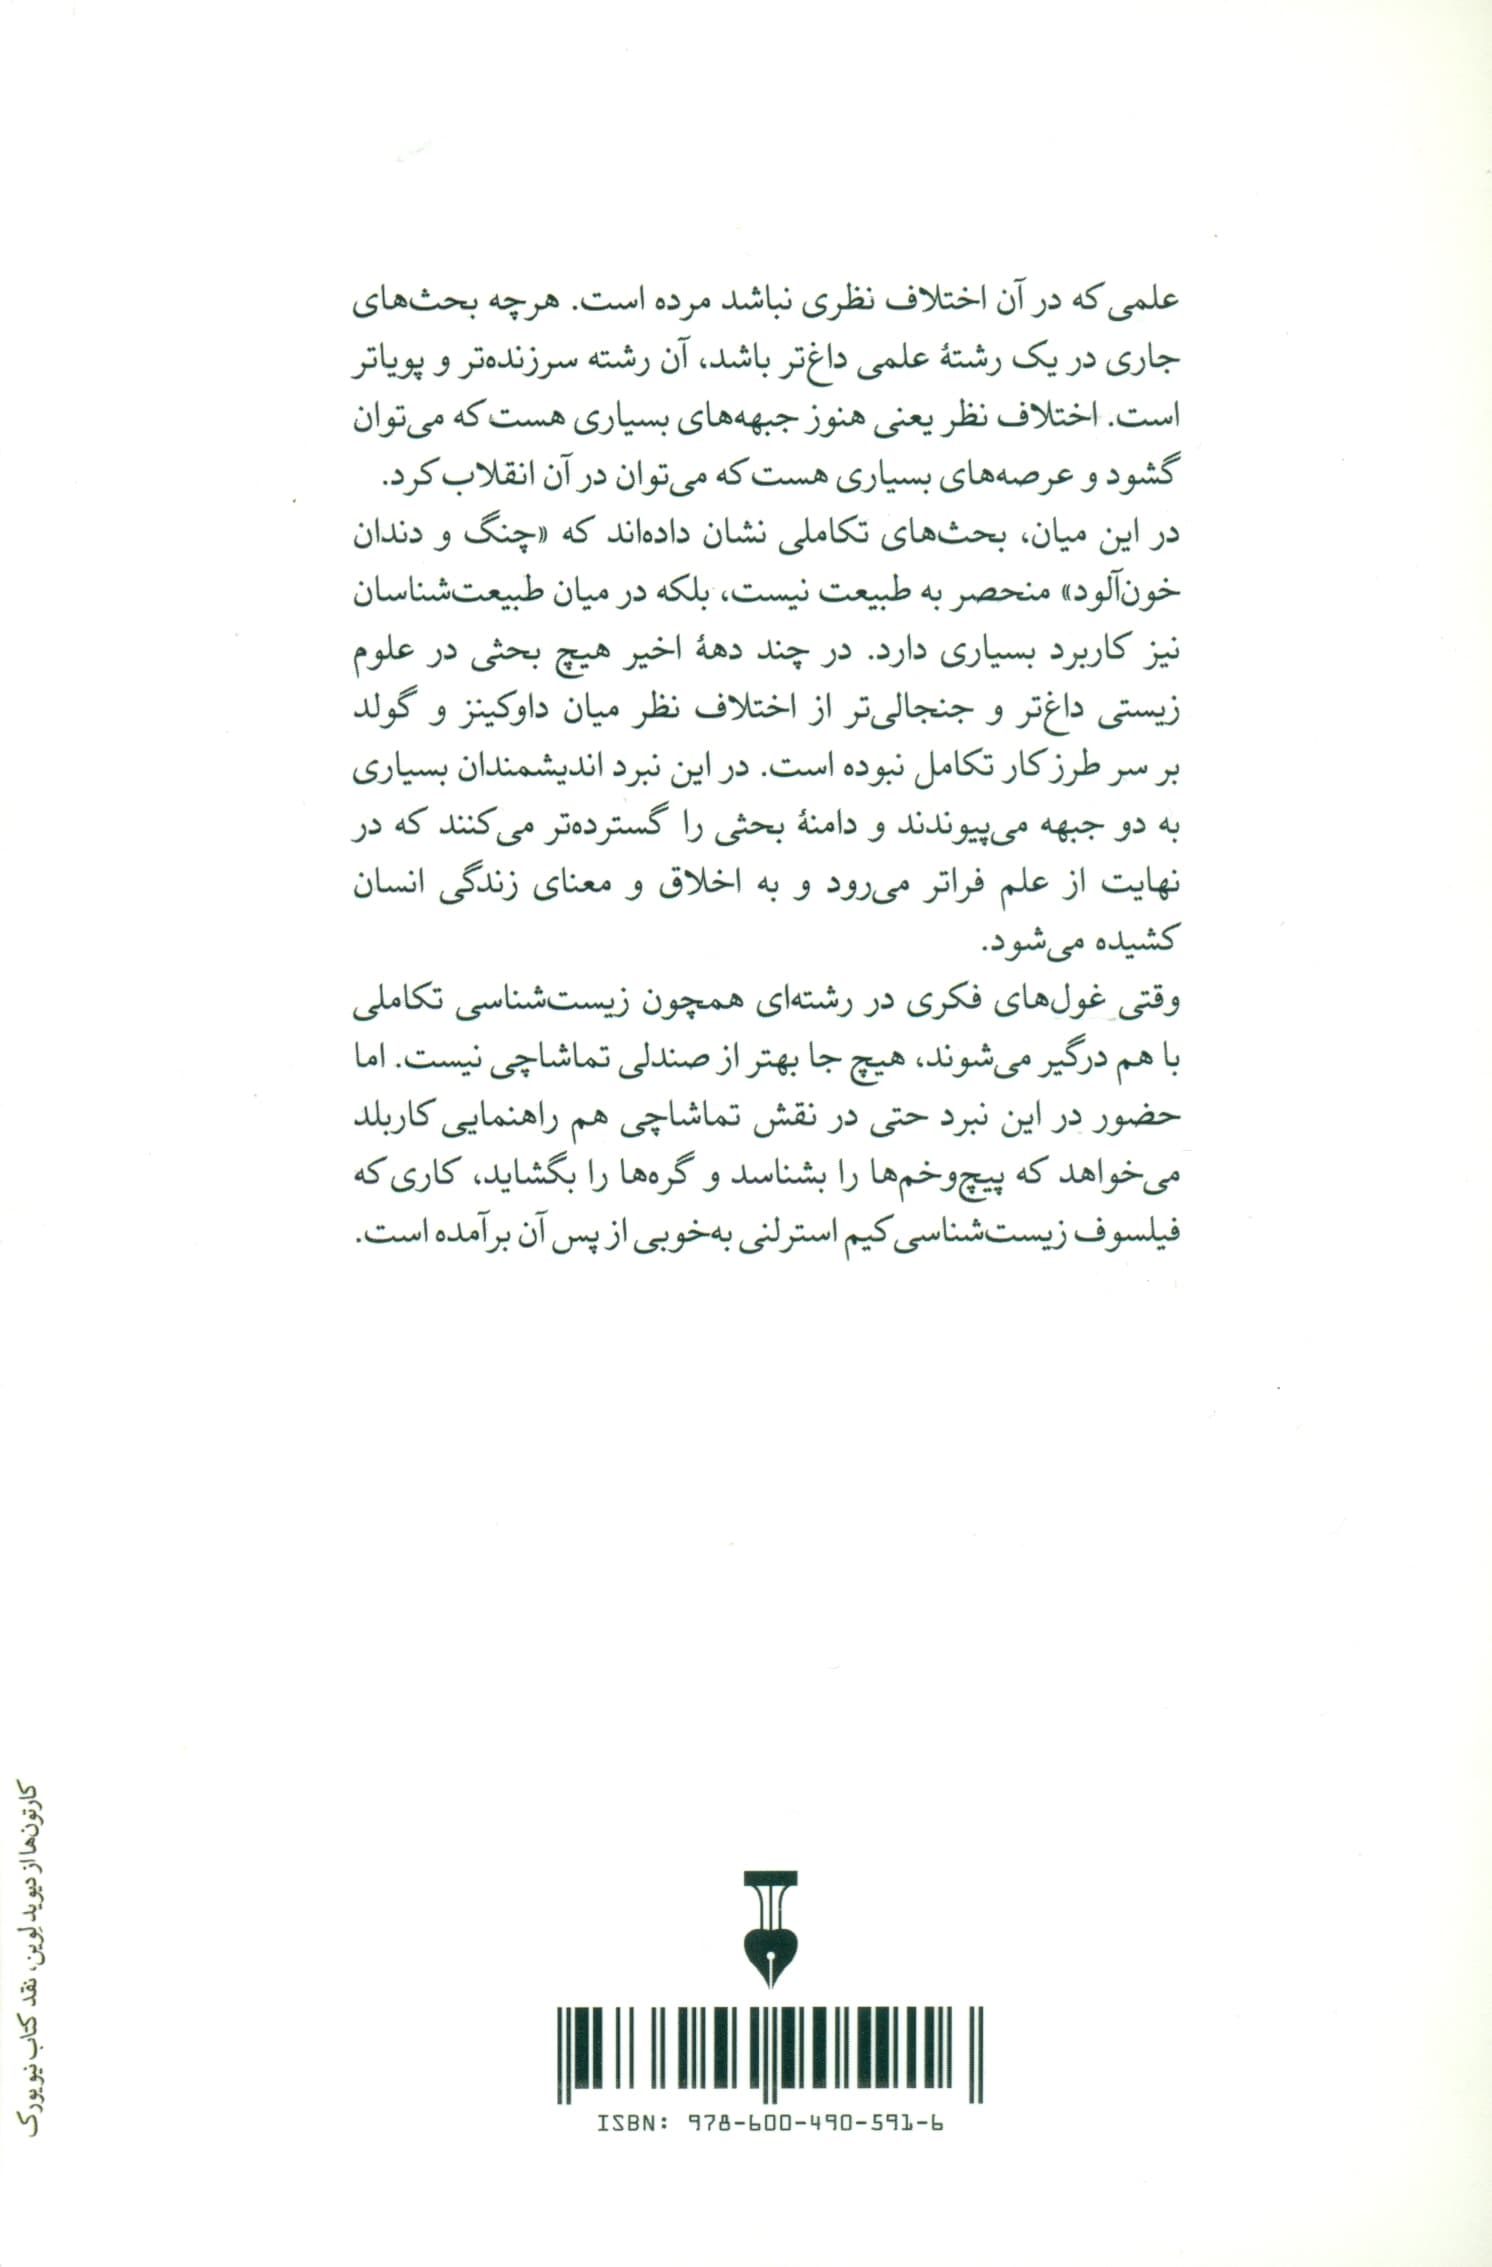 علمی که در آن اختلاف نظری نباشد مرده است. هرچه بحث‌های
جاری در یک رشتهٔ علمی داغ‌تر باشد، آن رشته سرزنده‌تر و پویاتر
است. اختلاف نظر یعنی هنوز جبهه‌های بسیاری هست که می‌توان
گشود و عرصه‌های بسیاری هست که می‌توان در آن انقلاب کرد.
در این میان، بحث‌های تکاملی نشان داده‌اند که «چنگ و دندان
خون‌آلود» منحصر به طبیعت نیست، بلکه در میان طبیعت‌شناسان
نیز کاربرد بسیاری دارد. در چند دههٔ اخیر هیچ بحثی در علوم
زیستی داغ‌تر و جنجالی‌تر از اختلاف نظر میان داوکینز و گولد
بر سر طرز کار تکامل نبوده است. در این نبرد اندیشمندان بسیاری
به دو جبهه می‌پیوندند و دامنهٔ بحثی را گسترده‌تر می‌کنند که در
نهایت از علم فراتر می‌رود و به اخلاق و معنای زندگی انسان
کشیده می‌شود.
وقتی غول‌های فکری در رشته‌ای همچون زیست‌شناسی تکاملی
با هم درگیر می‌شوند، هیچ جا بهتر از صندلی تماشاچی نیست. اما
حضور در این نبرد حتی در نقش تماشاچی هم راهنمایی کاربلد
می‌خواهد که پیچ‌وخم‌ها را بشناسد و گره‌ها را بگشاید، کاری که
فیلسوف زیست‌شناسی کیم استرلنی به‌خوبی از پس آن برآمده است.
کارتون‌ها از دیوید لِوین، نقد کتاب نیویورک
ISBN: 978-600-490-591-6